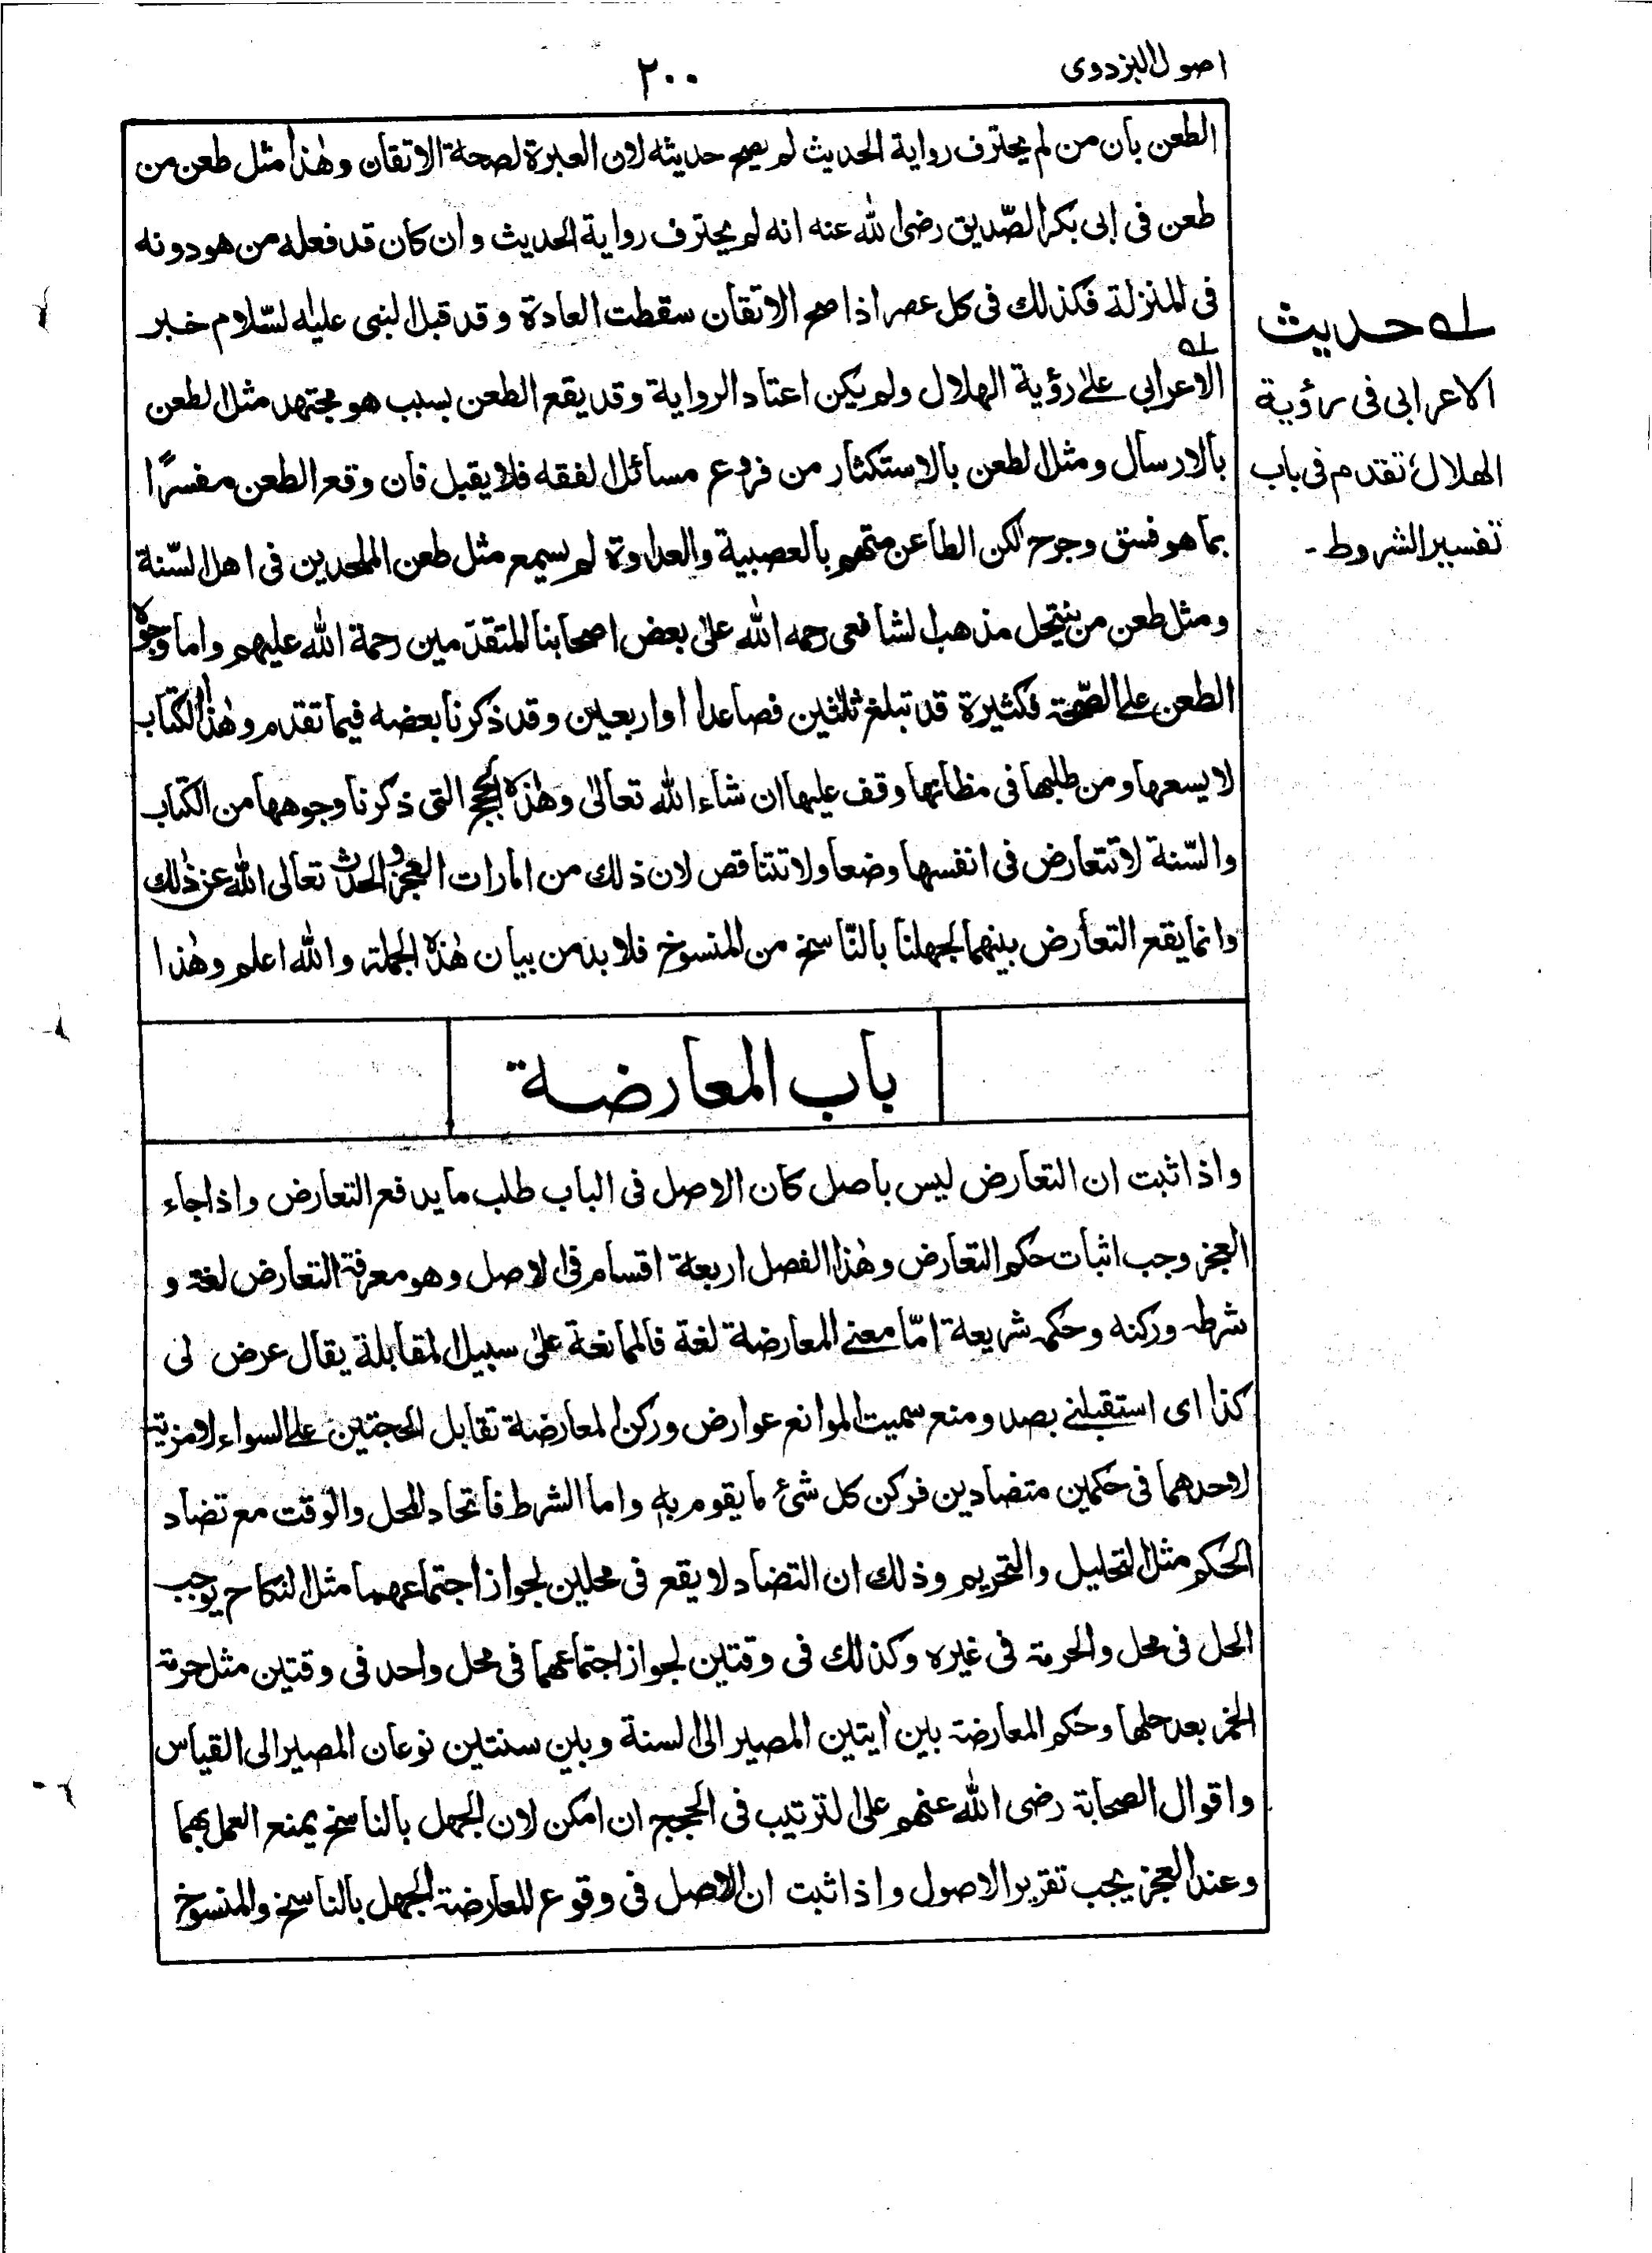 اصول البزدوى
٢٠٠
الطعن بان من لم يحترف رواية الحديث لم يصح حديثه لان العبرة لصحة الاتقان وهذا مثل طعن من
طعن فى ابى بكر الصّديق رضى الله عنه انه لم يحترف رواية الحديث وان كان قد فعله من هو دونه
فى المنزلة فكذلك فى كل عصر اذا صح الاتقان سقطت العادة وقد قبل النبى عليه السّلام خبر
الاعرابي له على رؤية الهلال ولم يكن اعتاد الرواية وقد يقع الطعن بسبب هو مجتهد مثل الطعن
بالارسال ومثل الطعن بالاستكثار من فروع مسائل الفقه فلا يقبل فان وقع الطعن مفسرًا
بما هو فسق وجرح لكن الطاعن متهم بالعصبية والعداوة لم يسمع مثل طعن الملحدين فى اهل السّنة
ومثل طعن من ينتحل مذهب الشافعى رحمه الله على بعض اصحابنا المتقدّمين رحمة الله عليهم واما وجوه
الطعن على الصّحة فكثيرة قد تبلغ ثلثين فصاعدا او اربعين وقد ذكرنا بعضه فيما تقدم وهذا الكتاب
لا يسعها ومن طلبها فى مظانها وقف عليها ان شاء الله تعالى وهذه الحجج التى ذكرنا وجوهها من الكتاب
والسّنة لا تتعارض فى انفسها وضعا ولا تتناقض لان ذلك من امارات العجز والحدث تعالى الله عن ذلك
وانما يقع التعارض بينهما لجهلنا بالنّاسخ من المنسوخ فلا بد من بيان هذه الجملة والله اعلم وهذا
باب المعارضة
واذا ثبت ان التعارض ليس باصل كان الاصل فى الباب طلب ما يدفع التعارض واذا جاء
العجز وجب اثبات حكم التعارض وهذا الفصل اربعة اقسام فى الاصل وهو معرفة التعارض لغة و
شرطه وركنه وحكمه شريعة امّا معنى المعارضة لغة فالممانعة على سبيل المقابلة يقال عرض لى
كذا اى استقبلنى بصد ومنع سميت الموانع عوارض وركن المعارضة تقابل الحجتين على السواء لا مزية
لاحدهما فى حكمين متضادين فركن كل شئ ما يقوم به واما الشرط فاتحاد المحل والوقت مع تضاد
الحكم مثل التحليل والتحريم وذلك ان التضاد لا يقع فى محلين لجواز اجتماعهما مثل النكاح يوجب
الحل فى محل والحرمة فى غيره وكذلك فى وقتين لجواز اجتماعهما فى محل واحد فى وقتين مثل حرمة
الخمر بعد حلها وحكم المعارضة بين ايتين المصير الى السنة وبين سنتين نوعان المصير الى القياس
واقوال الصحابة رضى الله عنهم على الترتيب فى الحجج ان امكن لان الجهل بالناسخ يمنع العمل بهما
وعند العجز يجب تقرير الاصول واذا ثبت ان الاصل فى وقوع المعارضة الجهل بالناسخ والمنسوخ
له حديث
الاعرابى فى رؤية
الهلال تقدم فى باب
تفسير الشروط -